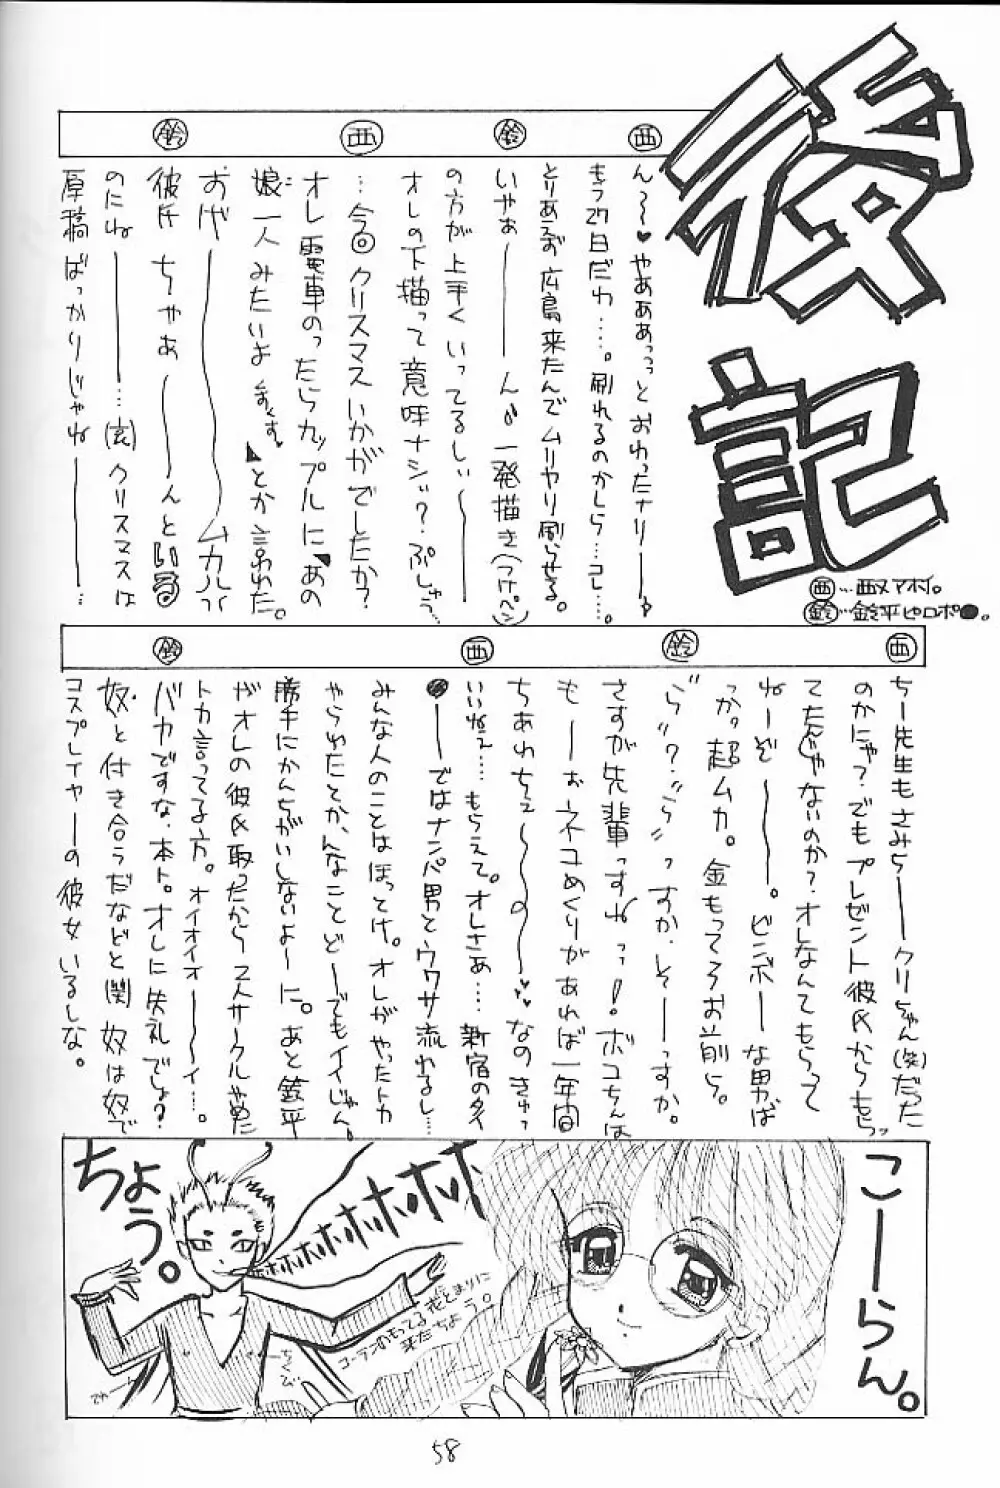 後記
㊄…西又アオイ。
鈴…鈴平ヒロポ●。
西
ん～～♥やあああっっとおわったナリ―――
もう27日だわ……。刷れるのかしら…コレ…。
とりあえず広島来たんでムリヤリ刷らせる。
鈴
いやぁ―――ん♪一発描き(つけペン)
の方が上手くいってるしぃ―――
オレの下描って意味ナシ?ぷしゅう…
西
…今回クリスマスいかがでしたか?
オレ電車のったらカップルに「あの
娘一人みたいよくすくす♥」とか言われた。
おのれ―――ムカルル
鈴
彼氏ちゃあ―――んといる
のにね―――…(玄)クリスマスは
原稿ばっかりじゃね―――…
西
ちー先生もさみら―――クリちゃん(笑)だった
のかにゃ?でもプレゼント彼氏からもらっ
てたんじゃないのか?オレなんてもらって
ねーぞ―――。ビンボーな男ば
っか。超ムカ。金もってろお前ら。
鈴
"ら"?"ら"っすか。そーっすか。
さすが先輩っすねっっ!ボコちんは
もーおネコめくりがあれば一年間
ちあわちぇ～～～♥♥なのきゅっ
西
いいねぇ……もらえて。オレさぁ……新宿の夕
●――ではナンパ男とウワサ流れるし…
みんな人のことはほっとけ。オレがやったトカ
やられたとか、んなことど―でもイイじゃん。
勝手にかんちがいしないよーに。あと鈴平
がオレの彼氏取ったから2人サークルやめた
トカ言ってる方。オイオイオ―――イ…。
鈴
バカですな、本ト。オレに失礼でしょ?
奴と付き合うだなどと(関)奴は奴で
コスプレイヤーの彼女いるしな。
こーらん。
ちょう。
ホホホホホホホホ
コーランのもってる花にとまりに
来たちょう。
ちくび
でれーん
58